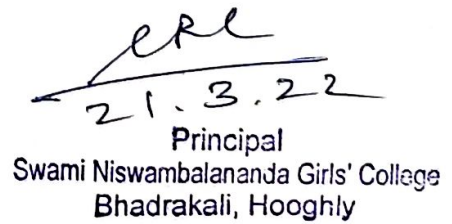 21.3.22
Principal
Swami Niswambalananda Girls' College
Bhadrakali, Hooghly